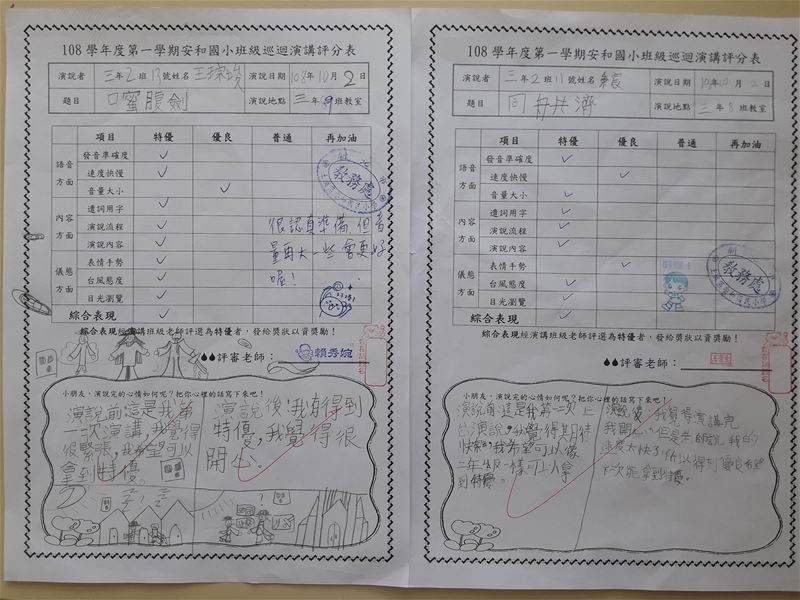 108 學年度第一學期安和國小班級巡迴演講評分表
演說者 三年2班13號姓名 演說日期 108年10月2日
題目 口蜜腹劍 演說地點 三年9班教室
項目 特優 優良 普通 再加油
語音方面
發音準確度 ✓
速度快慢 ✓
音量大小 ✓
內容方面
遣詞用字 ✓
演說流程 ✓
演說內容 ✓
儀態方面
表情手勢 ✓
台風態度 ✓
目光瀏覽 ✓
綜合表現 ✓
教務處
很認真準備，但音
量再大一些會更好
喔！
綜合表現經演講班級老師評選為特優者，發給獎狀以資獎勵！
評審老師：賴秀婉
小朋友，演說完的心情如何呢？把你心裡的話寫下來吧！
演說前：這是我第
一次演講，我覺得
很緊張，我希望可以
拿到特優。
演說後：我有得到
特優，我覺得很
開心。
108 學年度第一學期安和國小班級巡迴演講評分表
演說者 三年2班11號姓名 演說日期 108年10月2日
題目 同舟共濟 演說地點 三年8班教室
項目 特優 優良 普通 再加油
語音方面
發音準確度 ✓
速度快慢 ✓
音量大小 ✓
內容方面
遣詞用字 ✓
演說流程 ✓
演說內容 ✓
儀態方面
表情手勢 ✓
台風態度 ✓
目光瀏覽 ✓
綜合表現 ✓
教務處
綜合表現經演講班級老師評選為特優者，發給獎狀以資獎勵！
評審老師：
小朋友，演說完的心情如何呢？把你心裡的話寫下來吧！
演說前：這是我第二次上
台演說，我覺得期待
快樂，我希望可以像
二年級一樣可以拿
到特優。
演說後：我覺得演講完
我開心，但是老師說我的
速度太快了，所以得到優良希望
下次能拿到特優。